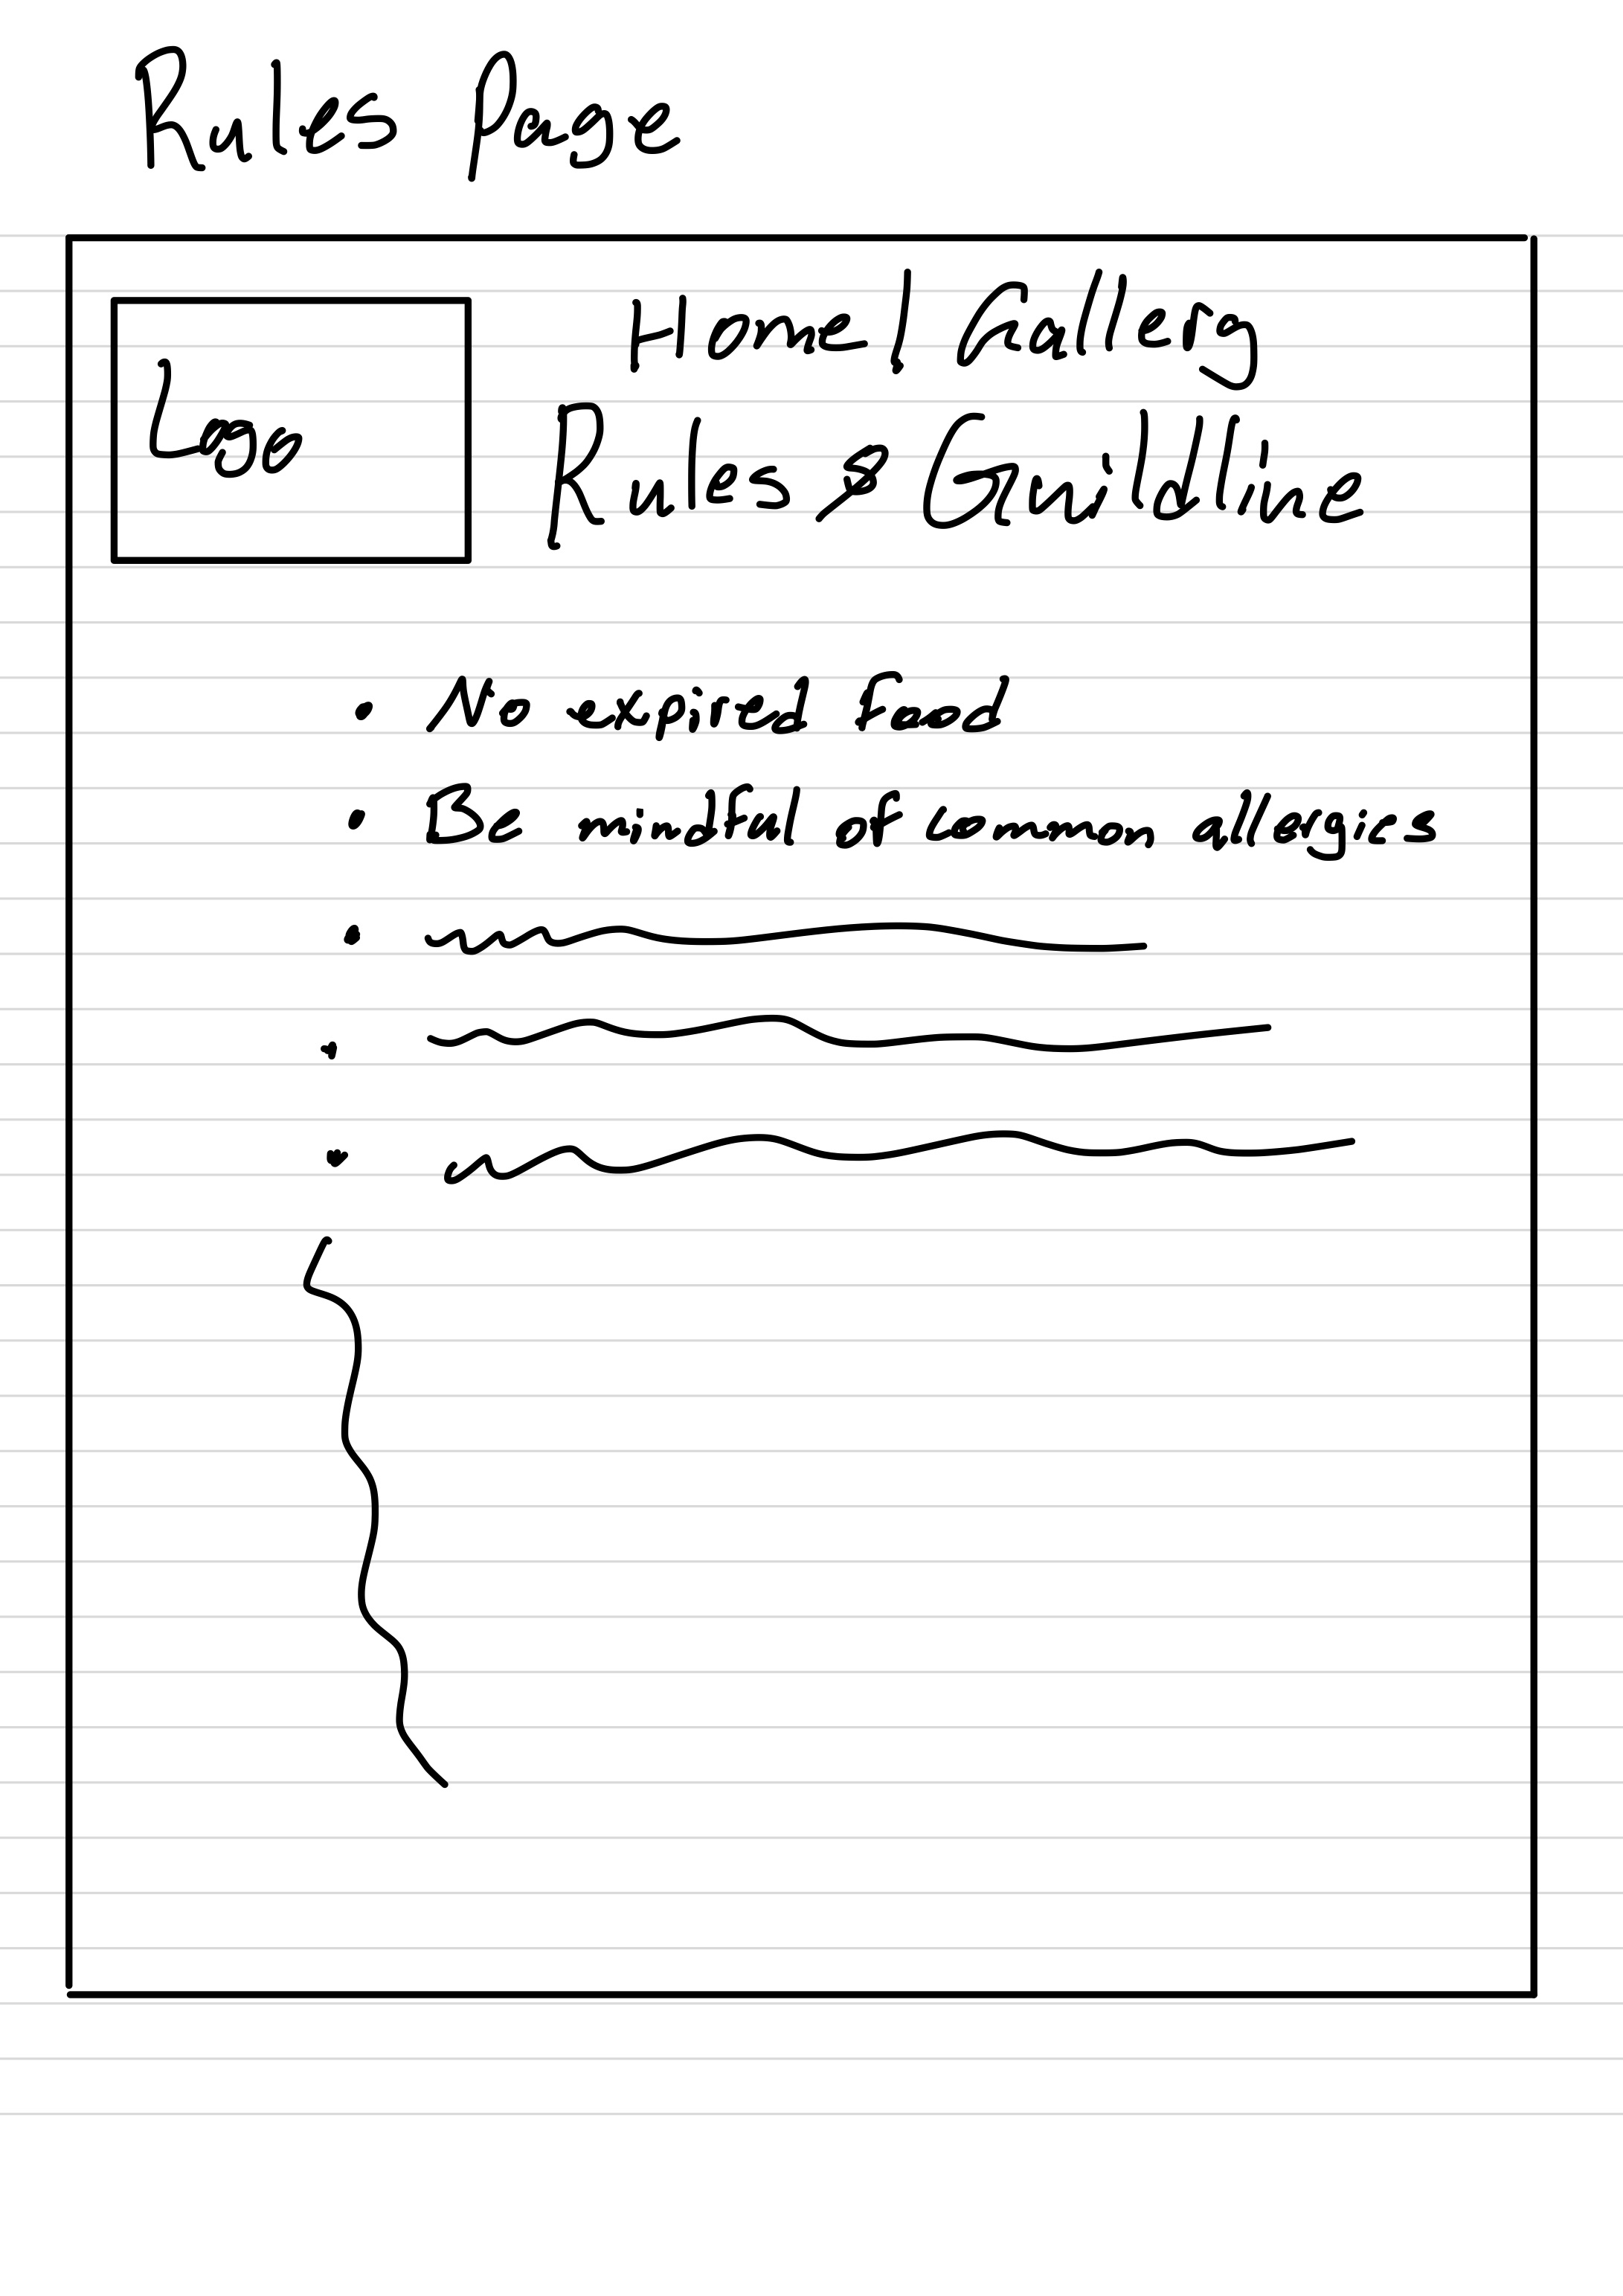 Rules Page
Home | Gallery
Logo
Rules & Guildline
• No expired food
• Be mindful of common allergies
•
•
•